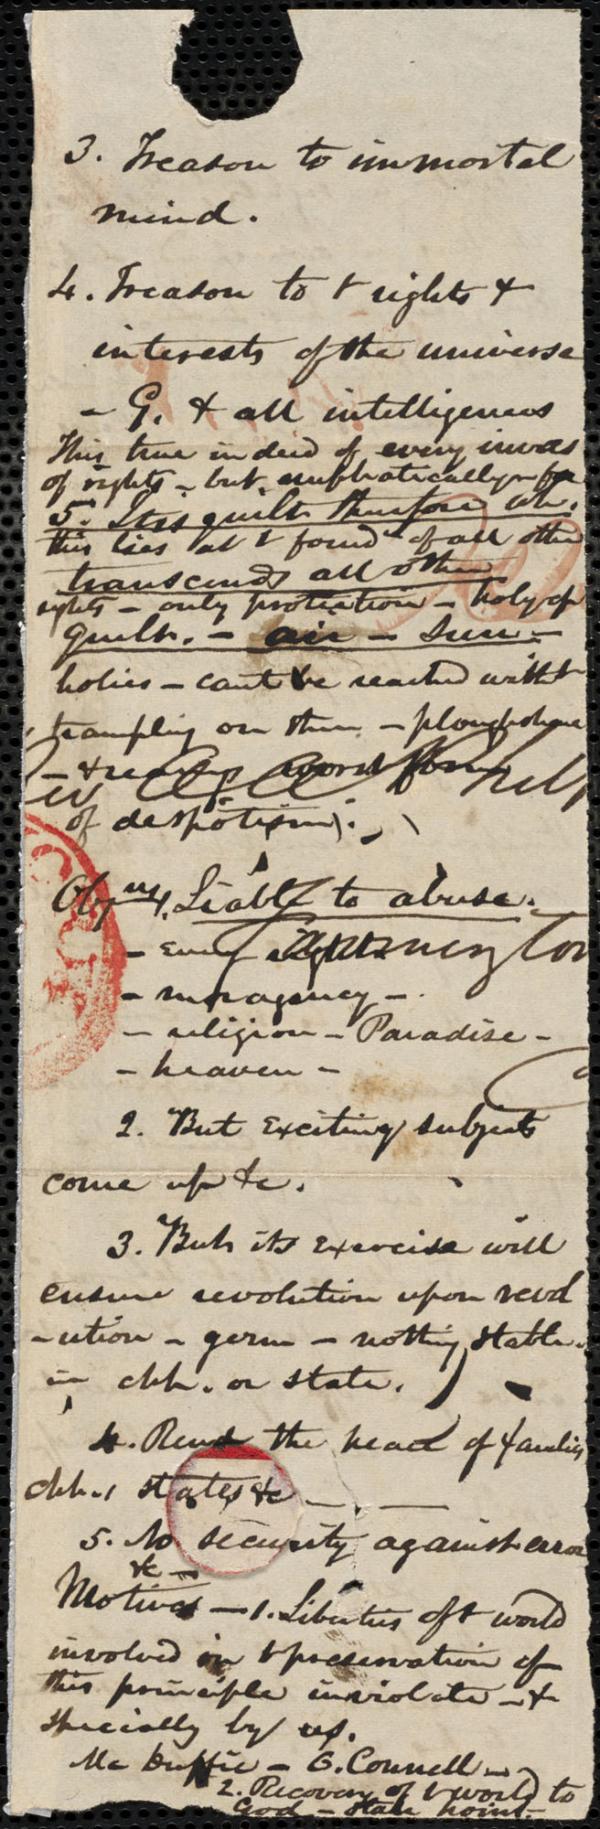 3. Treason to immortal
mind.
4. Treason to t rights &
interests of the universe
- G. & all intelligences
This true indeed of every invas
of rights - but emphatically - for
5. Its guilt therefore
this lies at t found - of all other
transcends all other
rights - only protection - holy of
guilt. - air - sun -
holies - cant be reached witht
trampling on them - ploughshare
- & worst form
of despotism).
Objns 1. Liable to abuse.
- every right
Farmington
- mor agency -
- religion - Paradise -
- heaven -
2. But exciting subjects
come up &c.
3. But its exercise will
ensure revolution upon revol
-ution - germ - nothing stable
in chh. or state.
4. Rend the peace of families
chh.s states &c
5. No security against error
&c -
Motives - 1. Liberties of t world
involved in t preservation of
this principle inviolate - &
specially by us.
Mc Duffie - O. Connell -
2. Recovery of t world to
God - stand point -